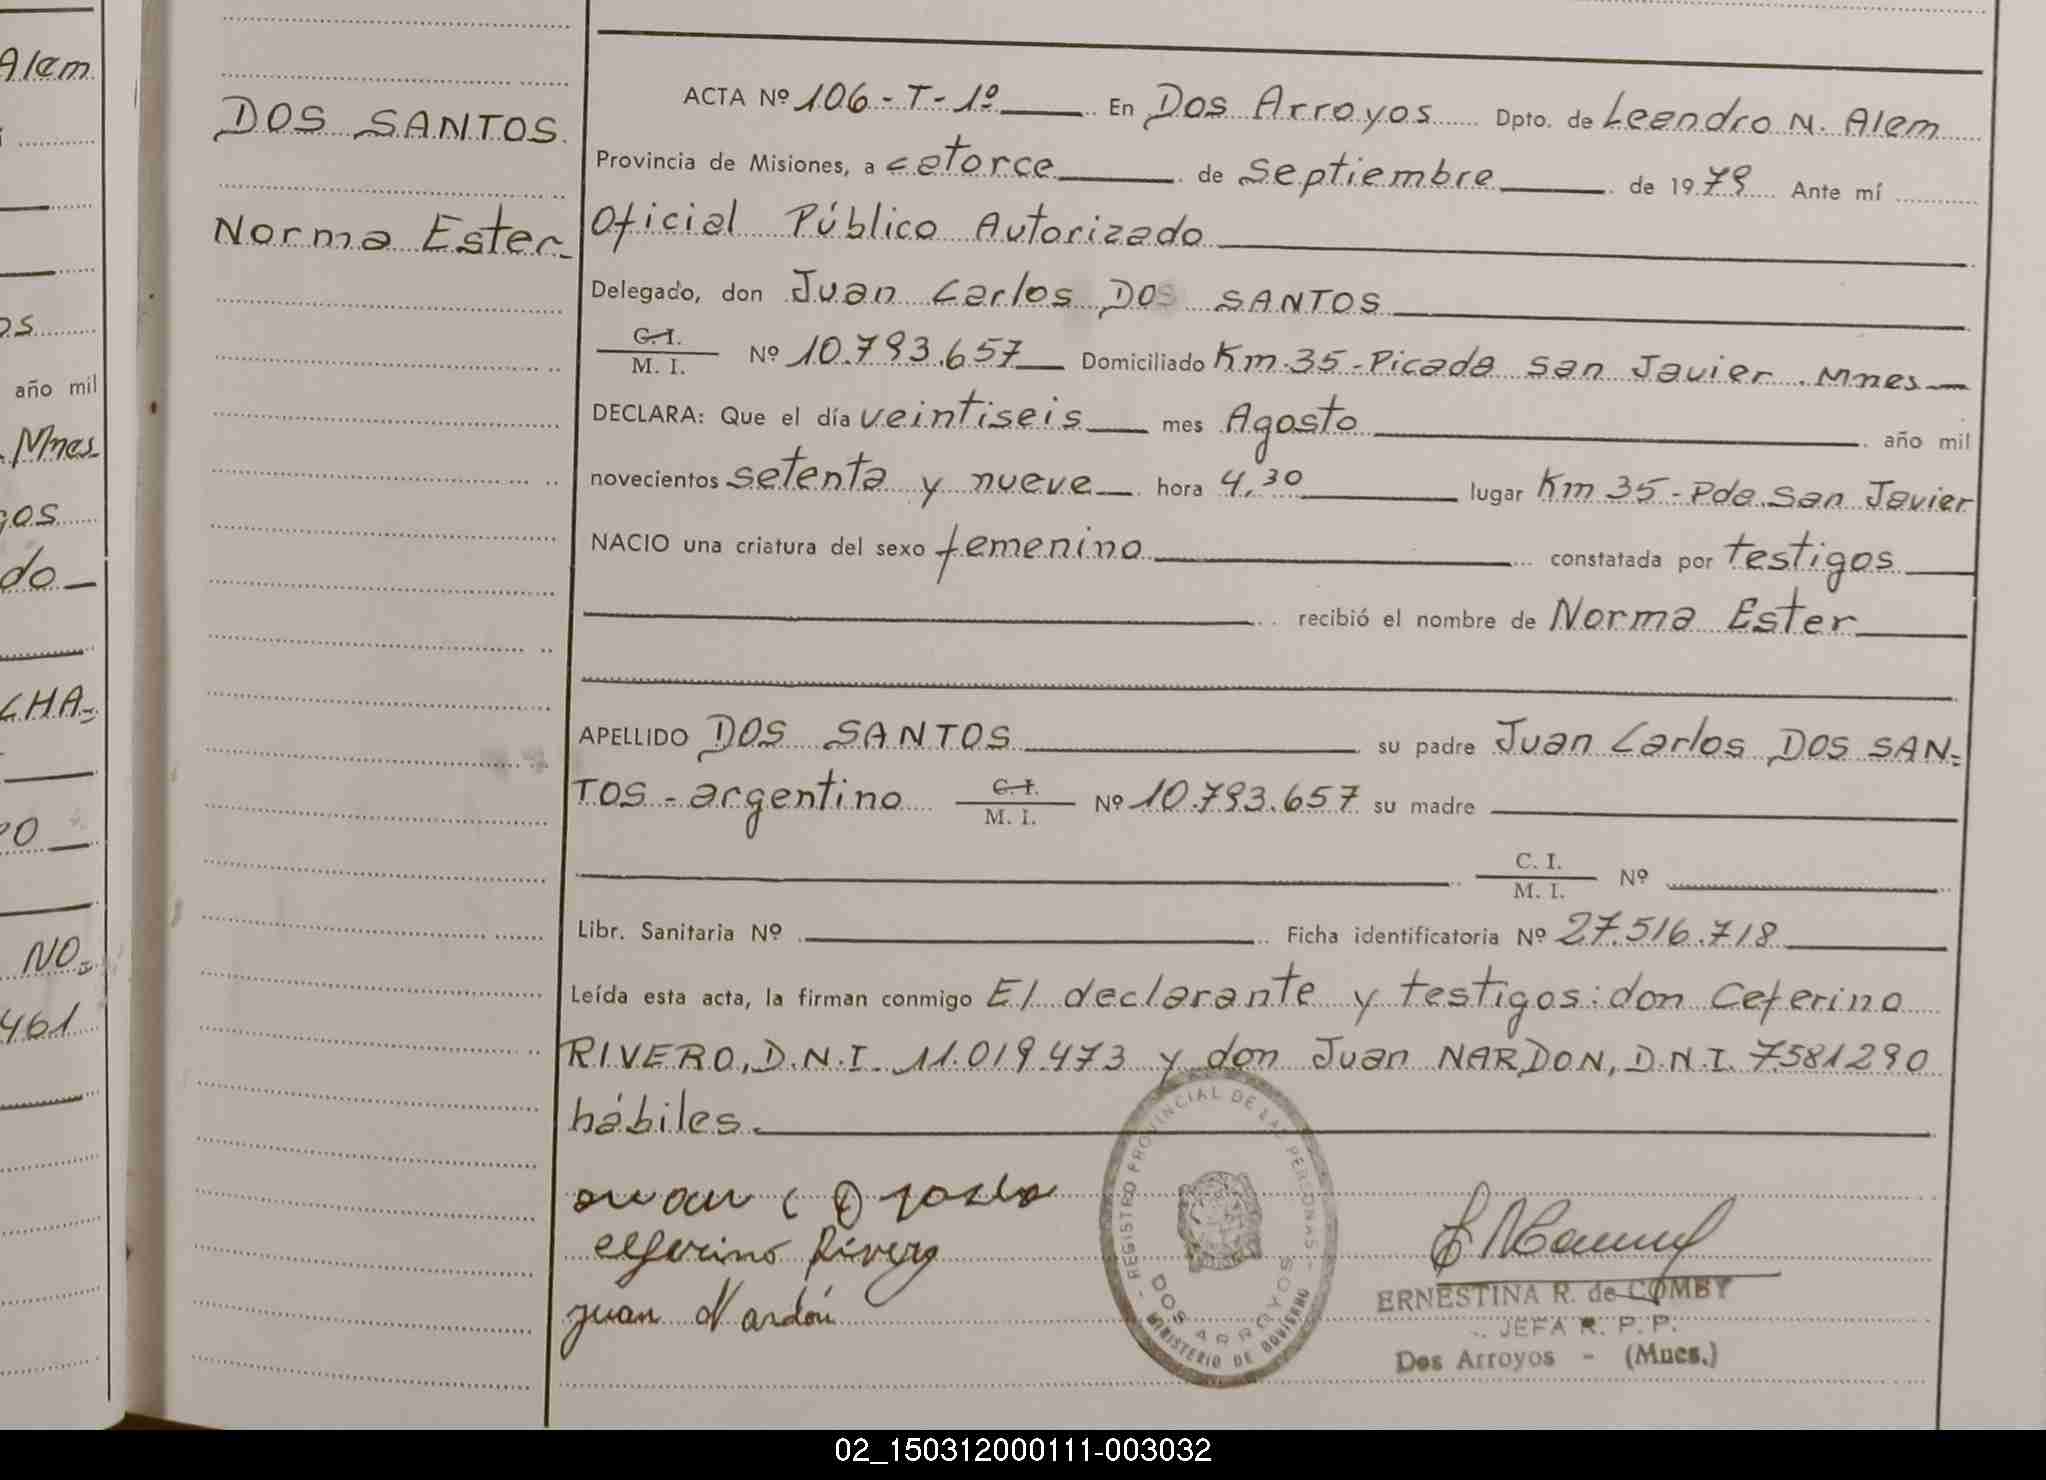 Alem
DOS SANTOS
Norma Ester
os
año mil
Mnes
gos
do
CHA-
RO
NO-
461
ACTA Nº 106-T-1º En Dos Arroyos Dpto. de Leandro N. Alem
Provincia de Misiones, a catorce de septiembre de 1979 Ante mí
Oficial Público Autorizado
Delegado, don Juan Carlos DOS SANTOS
C.I.
M. I. Nº 10.793.657 Domiciliado Km.35-Picada San Javier. Mnes
DECLARA: Que el día veintiseis mes Agosto año mil
novecientos setenta y nueve hora 4,30 lugar Km 35-Pda.San Javier
NACIO una criatura del sexo femenino constatada por testigos
recibió el nombre de Norma Ester
APELLIDO DOS SANTOS su padre Juan Carlos DOS SAN-
TOS-argentino C.I. M. I. Nº 10.793.657 su madre
C. I.
M. I. Nº
Libr. Sanitaria Nº Ficha identificatoria Nº 27.516.718
Leída esta acta, la firman conmigo El declarante y testigos: don Ceferino
RIVERO, D.N.I. 11.019.473 y don Juan NARDON, D.N.I. 7581290
hábiles.
REGISTRO PROVINCIAL DE LAS PERSONAS
DOS ARROYOS
MINISTERIO DE GOBIERNO
Rivero
juan Nardón
ERNESTINA R. de COMBY
JEFA R. P. P.
Dos Arroyos - (Mnes.)
02_150312000111-003032